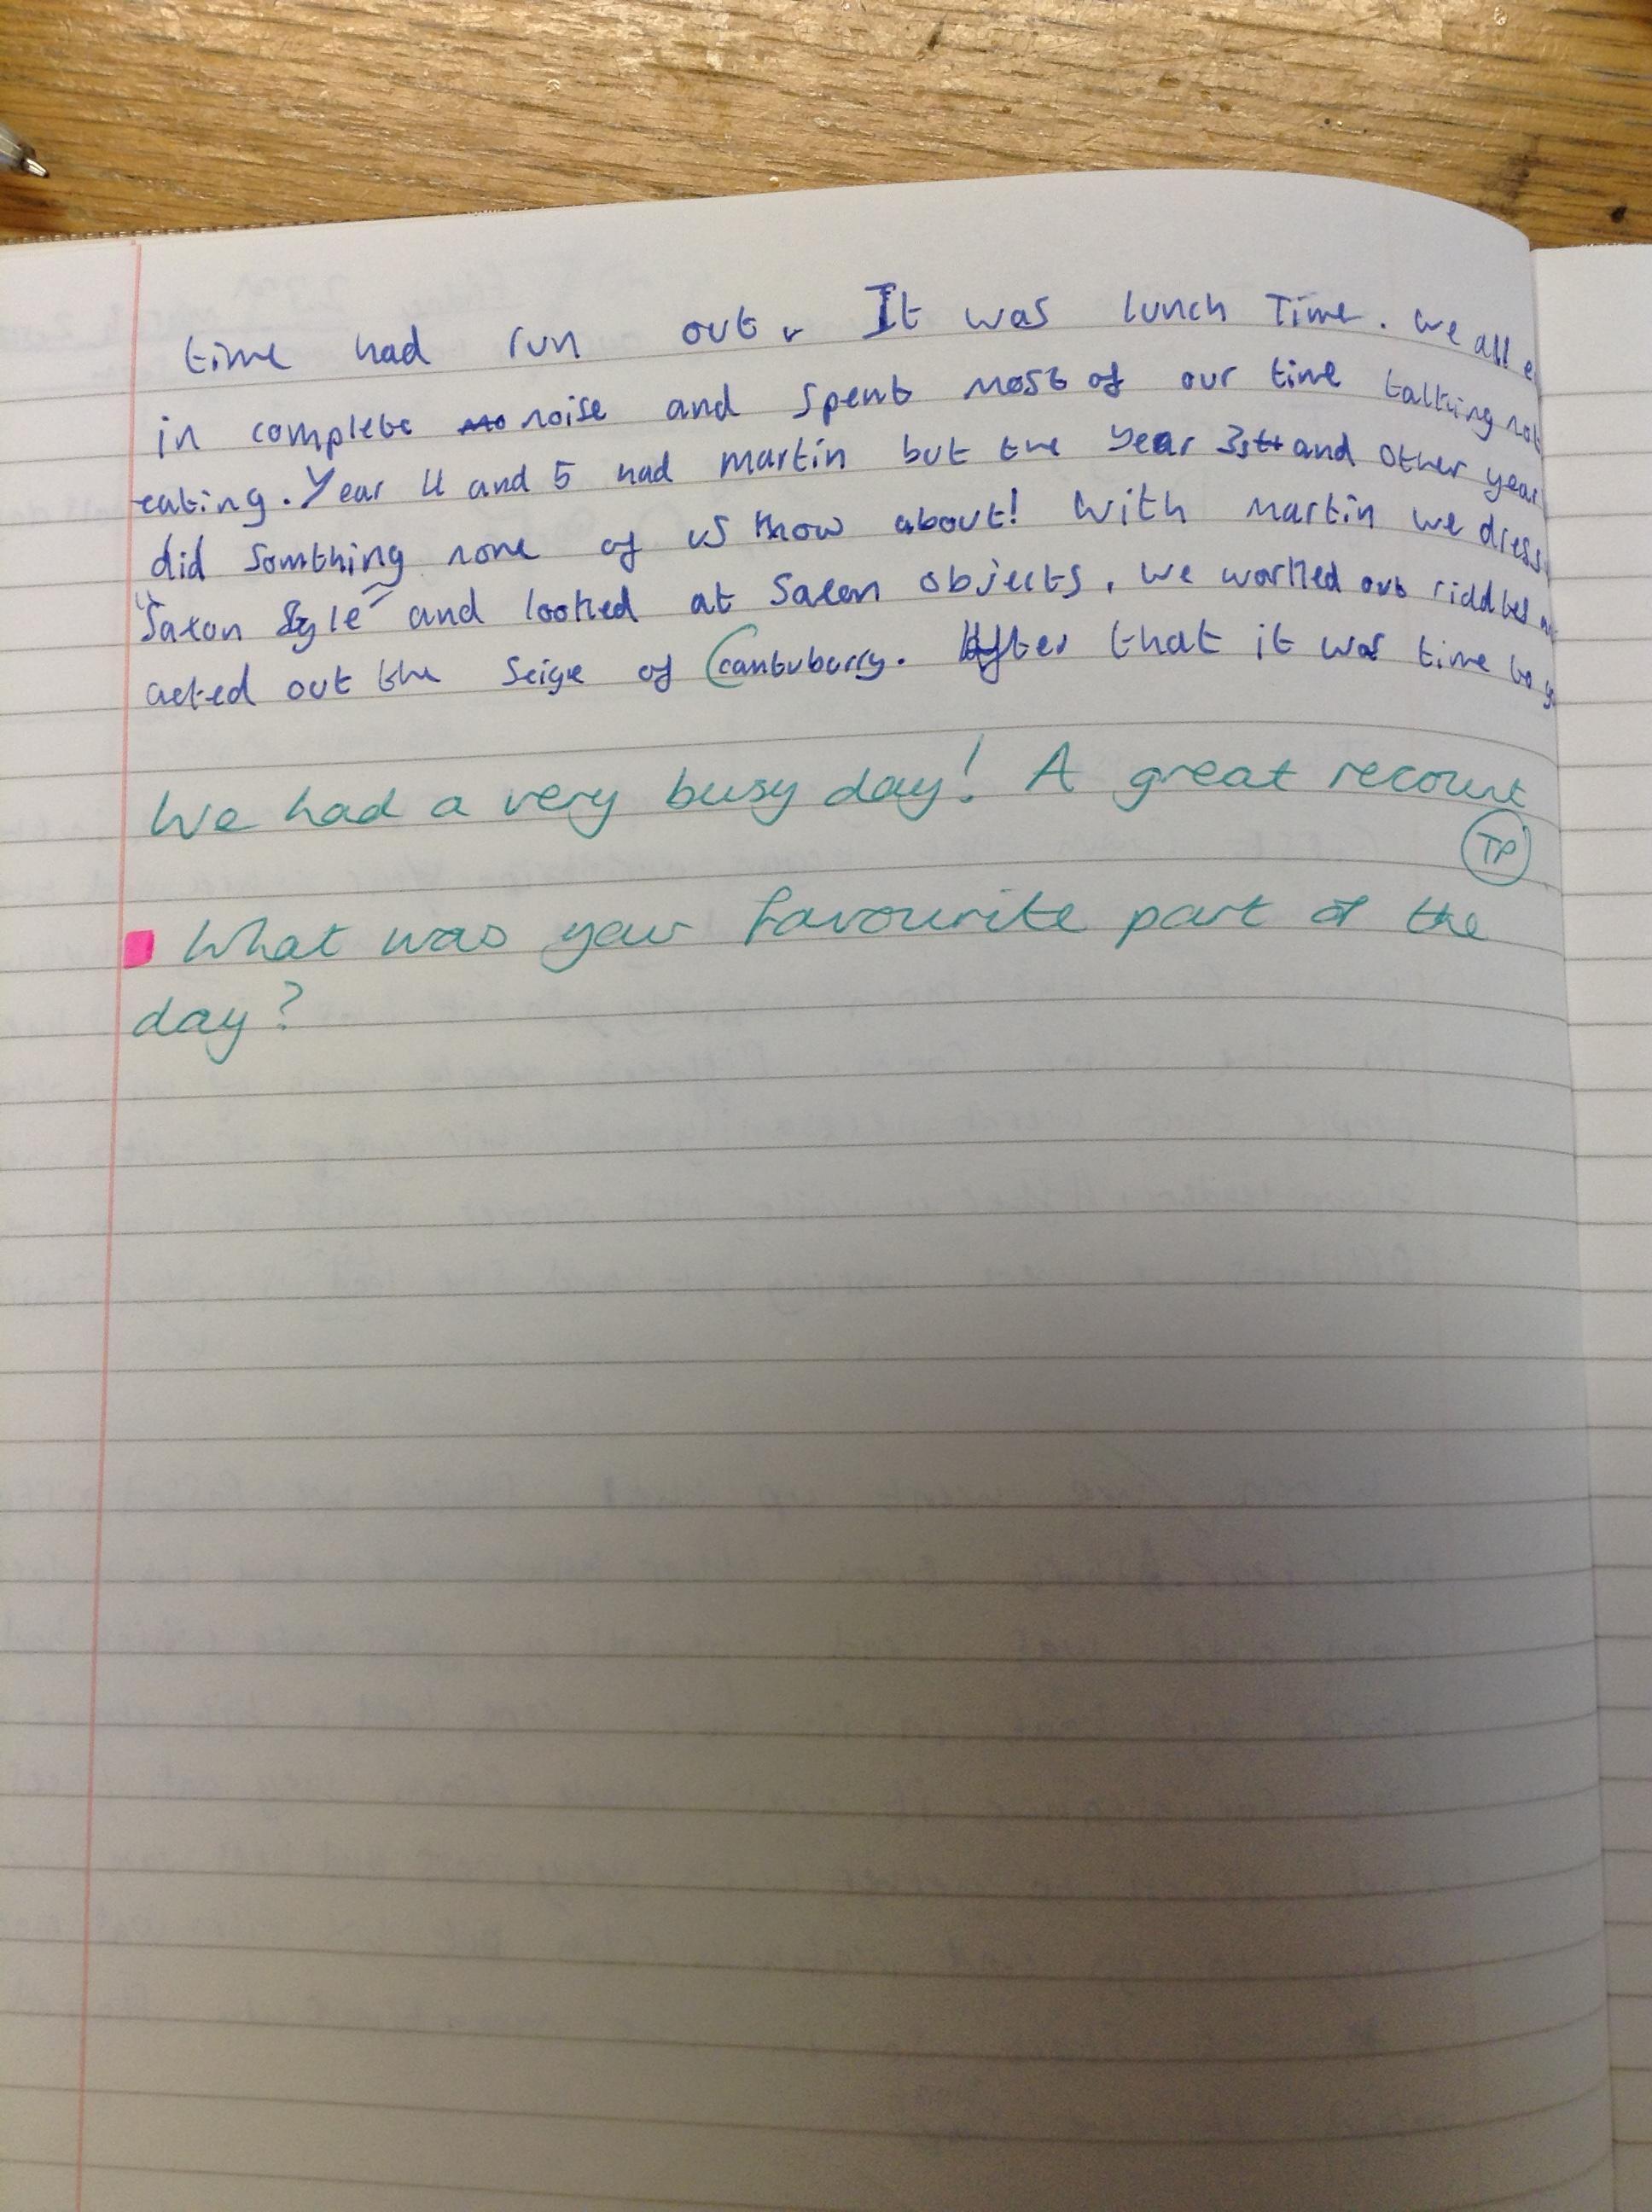 time had run out. It was lunch Time. We all e
in complete noise and spent most of our time talking not
eating. Year 4 and 5 had martin but the Year 3s and other year
did somthing none of us know about! With martin we dress
Saxon Syle and looked at Saxon objects, we worked out riddles
acted out the Seige of Cantuburry. After that it was time to g
We had a very busy day! A great recount
TP
What was your favourite part of the
day?